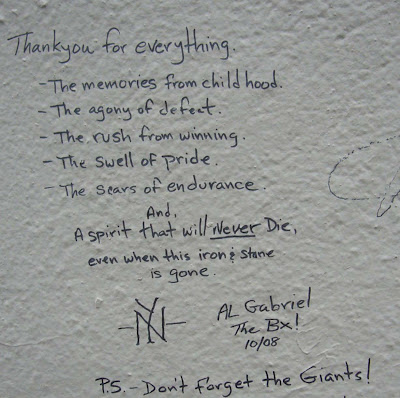 Thankyou for everything.
- The memories from child hood.
- The agony of defect.
- The rush from winning.
- The swell of pride.
- The scars of endurance.
And,
A spirit that will Never Die,
even when this iron & stone
is gone.
-NY-
AL Gabriel
The Bx!
10/08
P.S. - Don't forget the Giants!